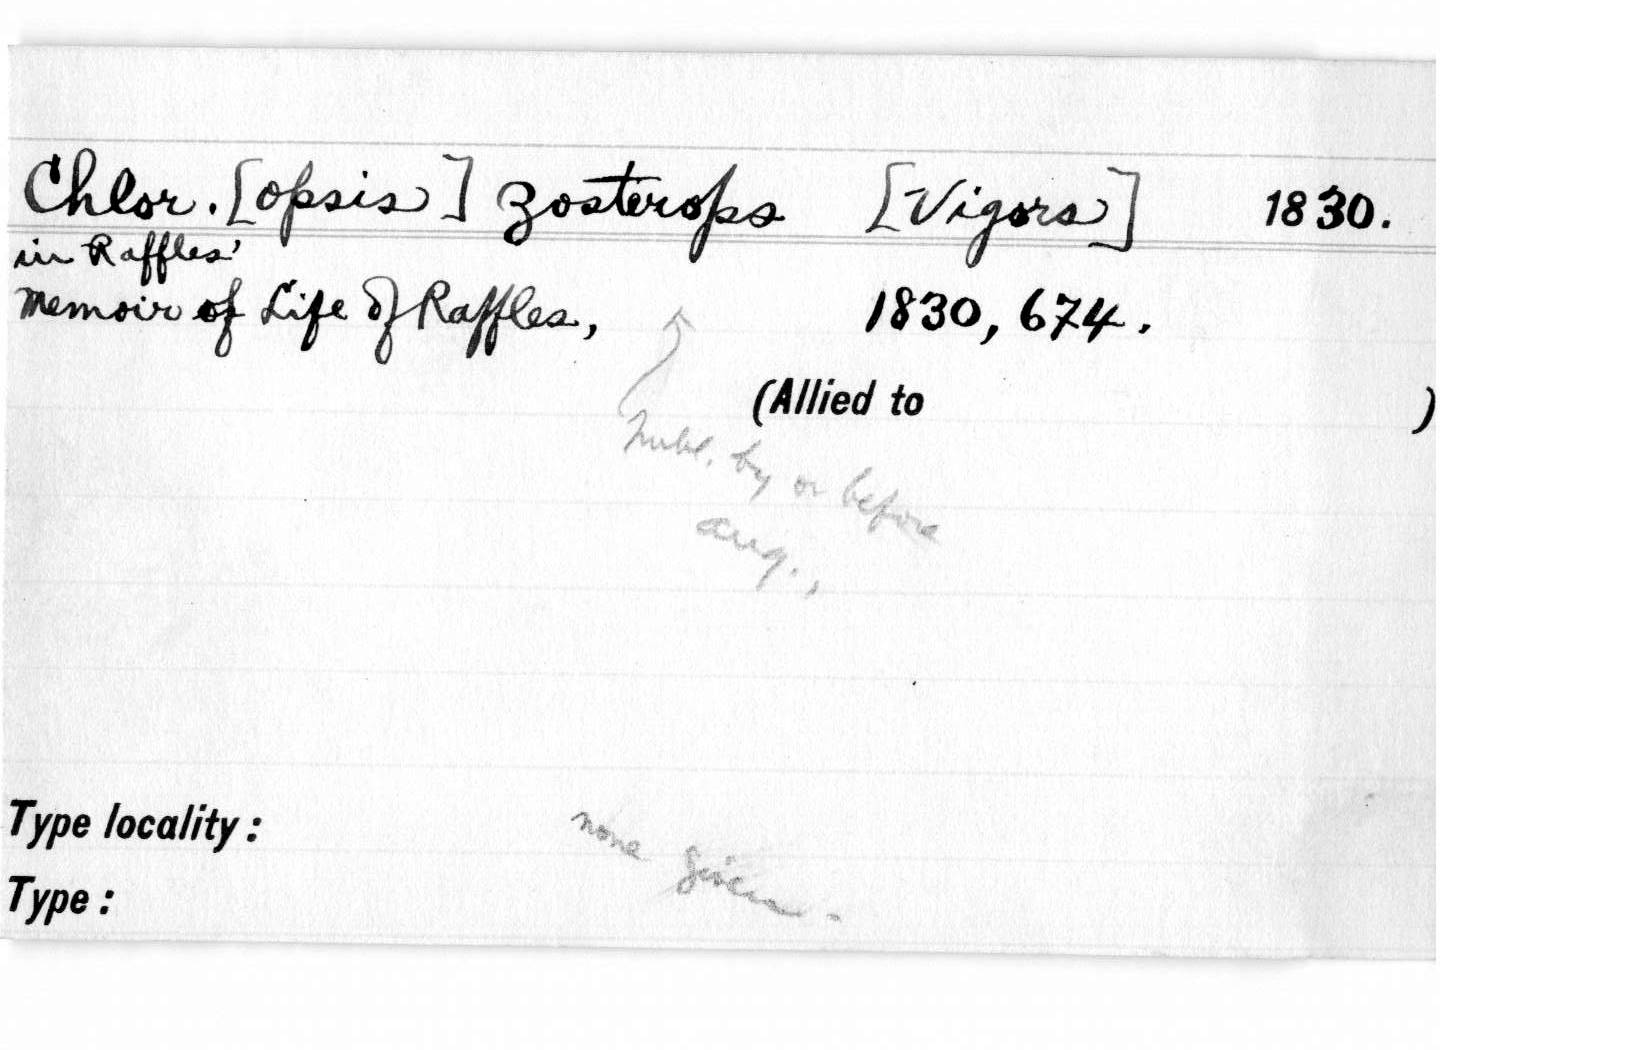 Chlor. [opsis] zosterops [Vigors] 1830.
in Raffles'
Memoir of Life of Raffles, 1830, 674.
(Allied to )
Publ. by or before
Aug.,
Type locality: none given.
Type: